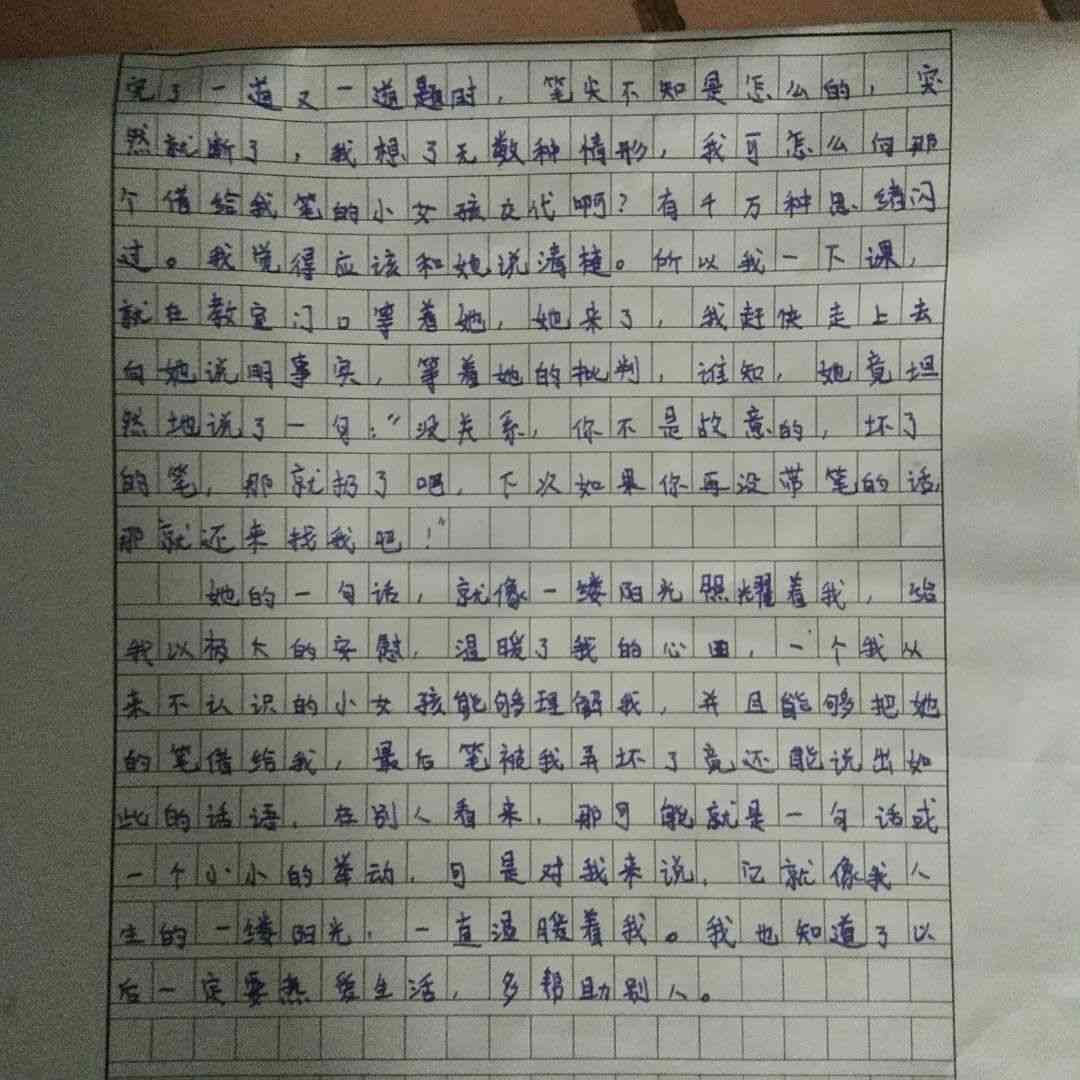 完了一道又一道题时，笔尖不知是怎么的，突
然就断了，我想了无数种情形，我可怎么向那
个借给我笔的小女孩交代啊？有千万种思绪闪
过。我觉得应该和她说清楚。所以我一下课，
就在教室门口等着她，她来了，我赶快走上去
向她说明事实，等着她的批判，谁知，她竟坦
然地说了一句：“没关系，你不是故意的，坏了
的笔，那就扔了吧，下次如果你再没带笔的话，
那就还来找我吧！”
她的一句话，就像一缕阳光照耀着我，给
我以极大的安慰，温暖了我的心田，一个我从
来不认识的小女孩能够理解我，并且能够把她
的笔借给我，最后笔被我弄坏了竟还能说出如
此的话语，在别人看来，那可能就是一句话或
一个小小的举动，可是对我来说，它就像我人
生的一缕阳光，一直温暖着我。我也知道了以
后一定要热爱生活，多帮助别人。